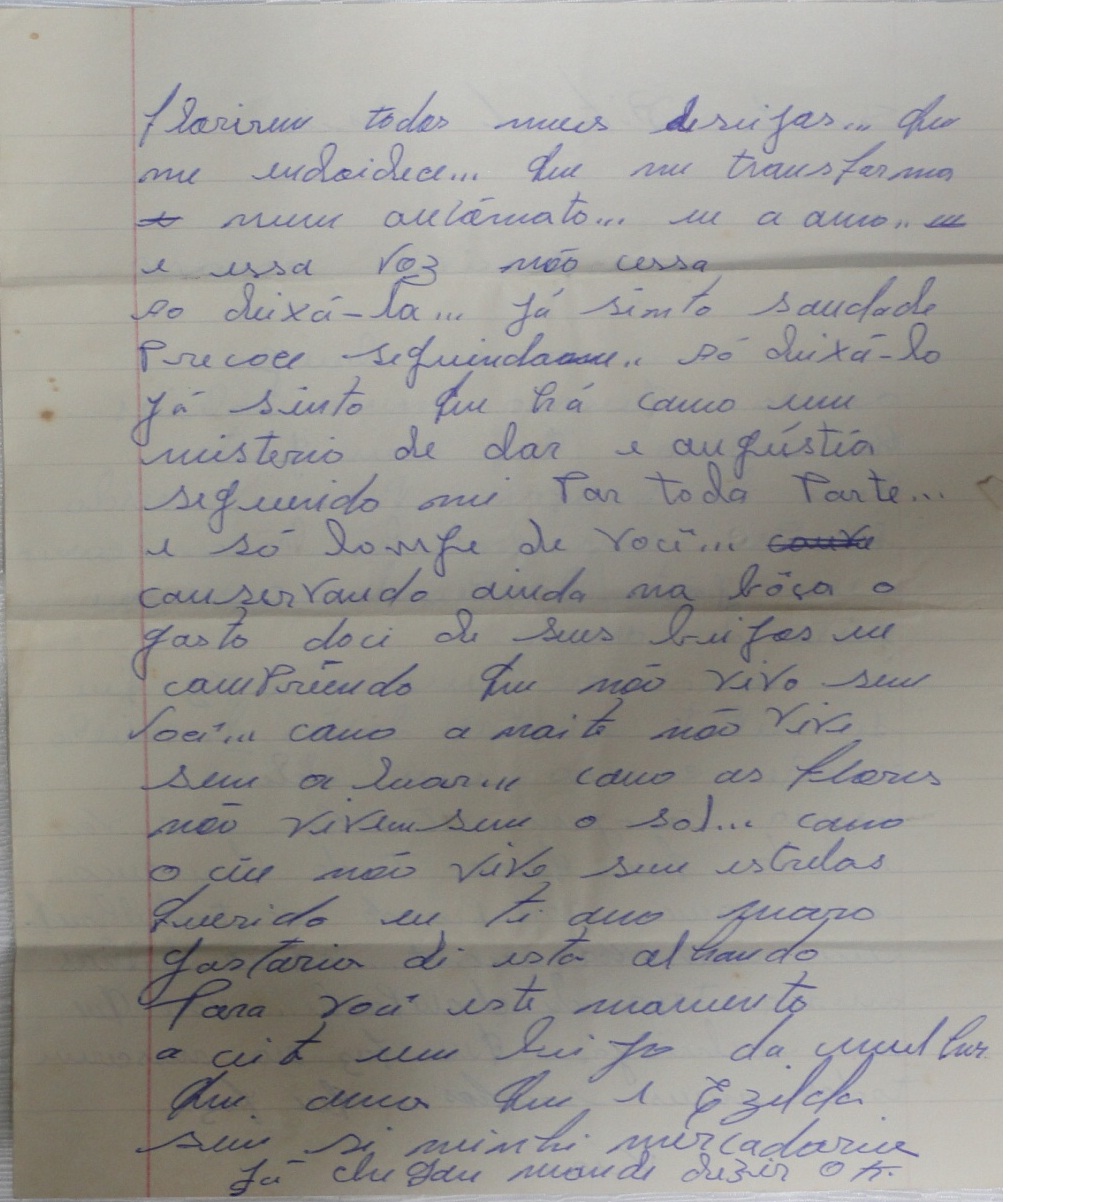 florirem todos meus desejos... que
me endoidece... que me transforma
num autômato... eu a amo..
e essa voz não cessa
so deixá-la... já sinto saudade
Precoce seguindo me.. só deixá-lo
já sinto que há como um
misterio de dor e angústia
seguindo mi Por toda Parte...
e só longe de você...
conservando ainda na bôca o
gosto doci de seus beijos eu
comPreêndo que não vivo sem
você... como a noite não vive
sem o luar... como as flores
não vivem sem o sol... como
o ceu não vive sem estrelas
querido eu ti amo muito
gostaria di está olhando
Para você este momento
aceite um beijo da mulher
que ama que e Ezilda
sem si minhi mercadoria
já chegou mande dizer ok.